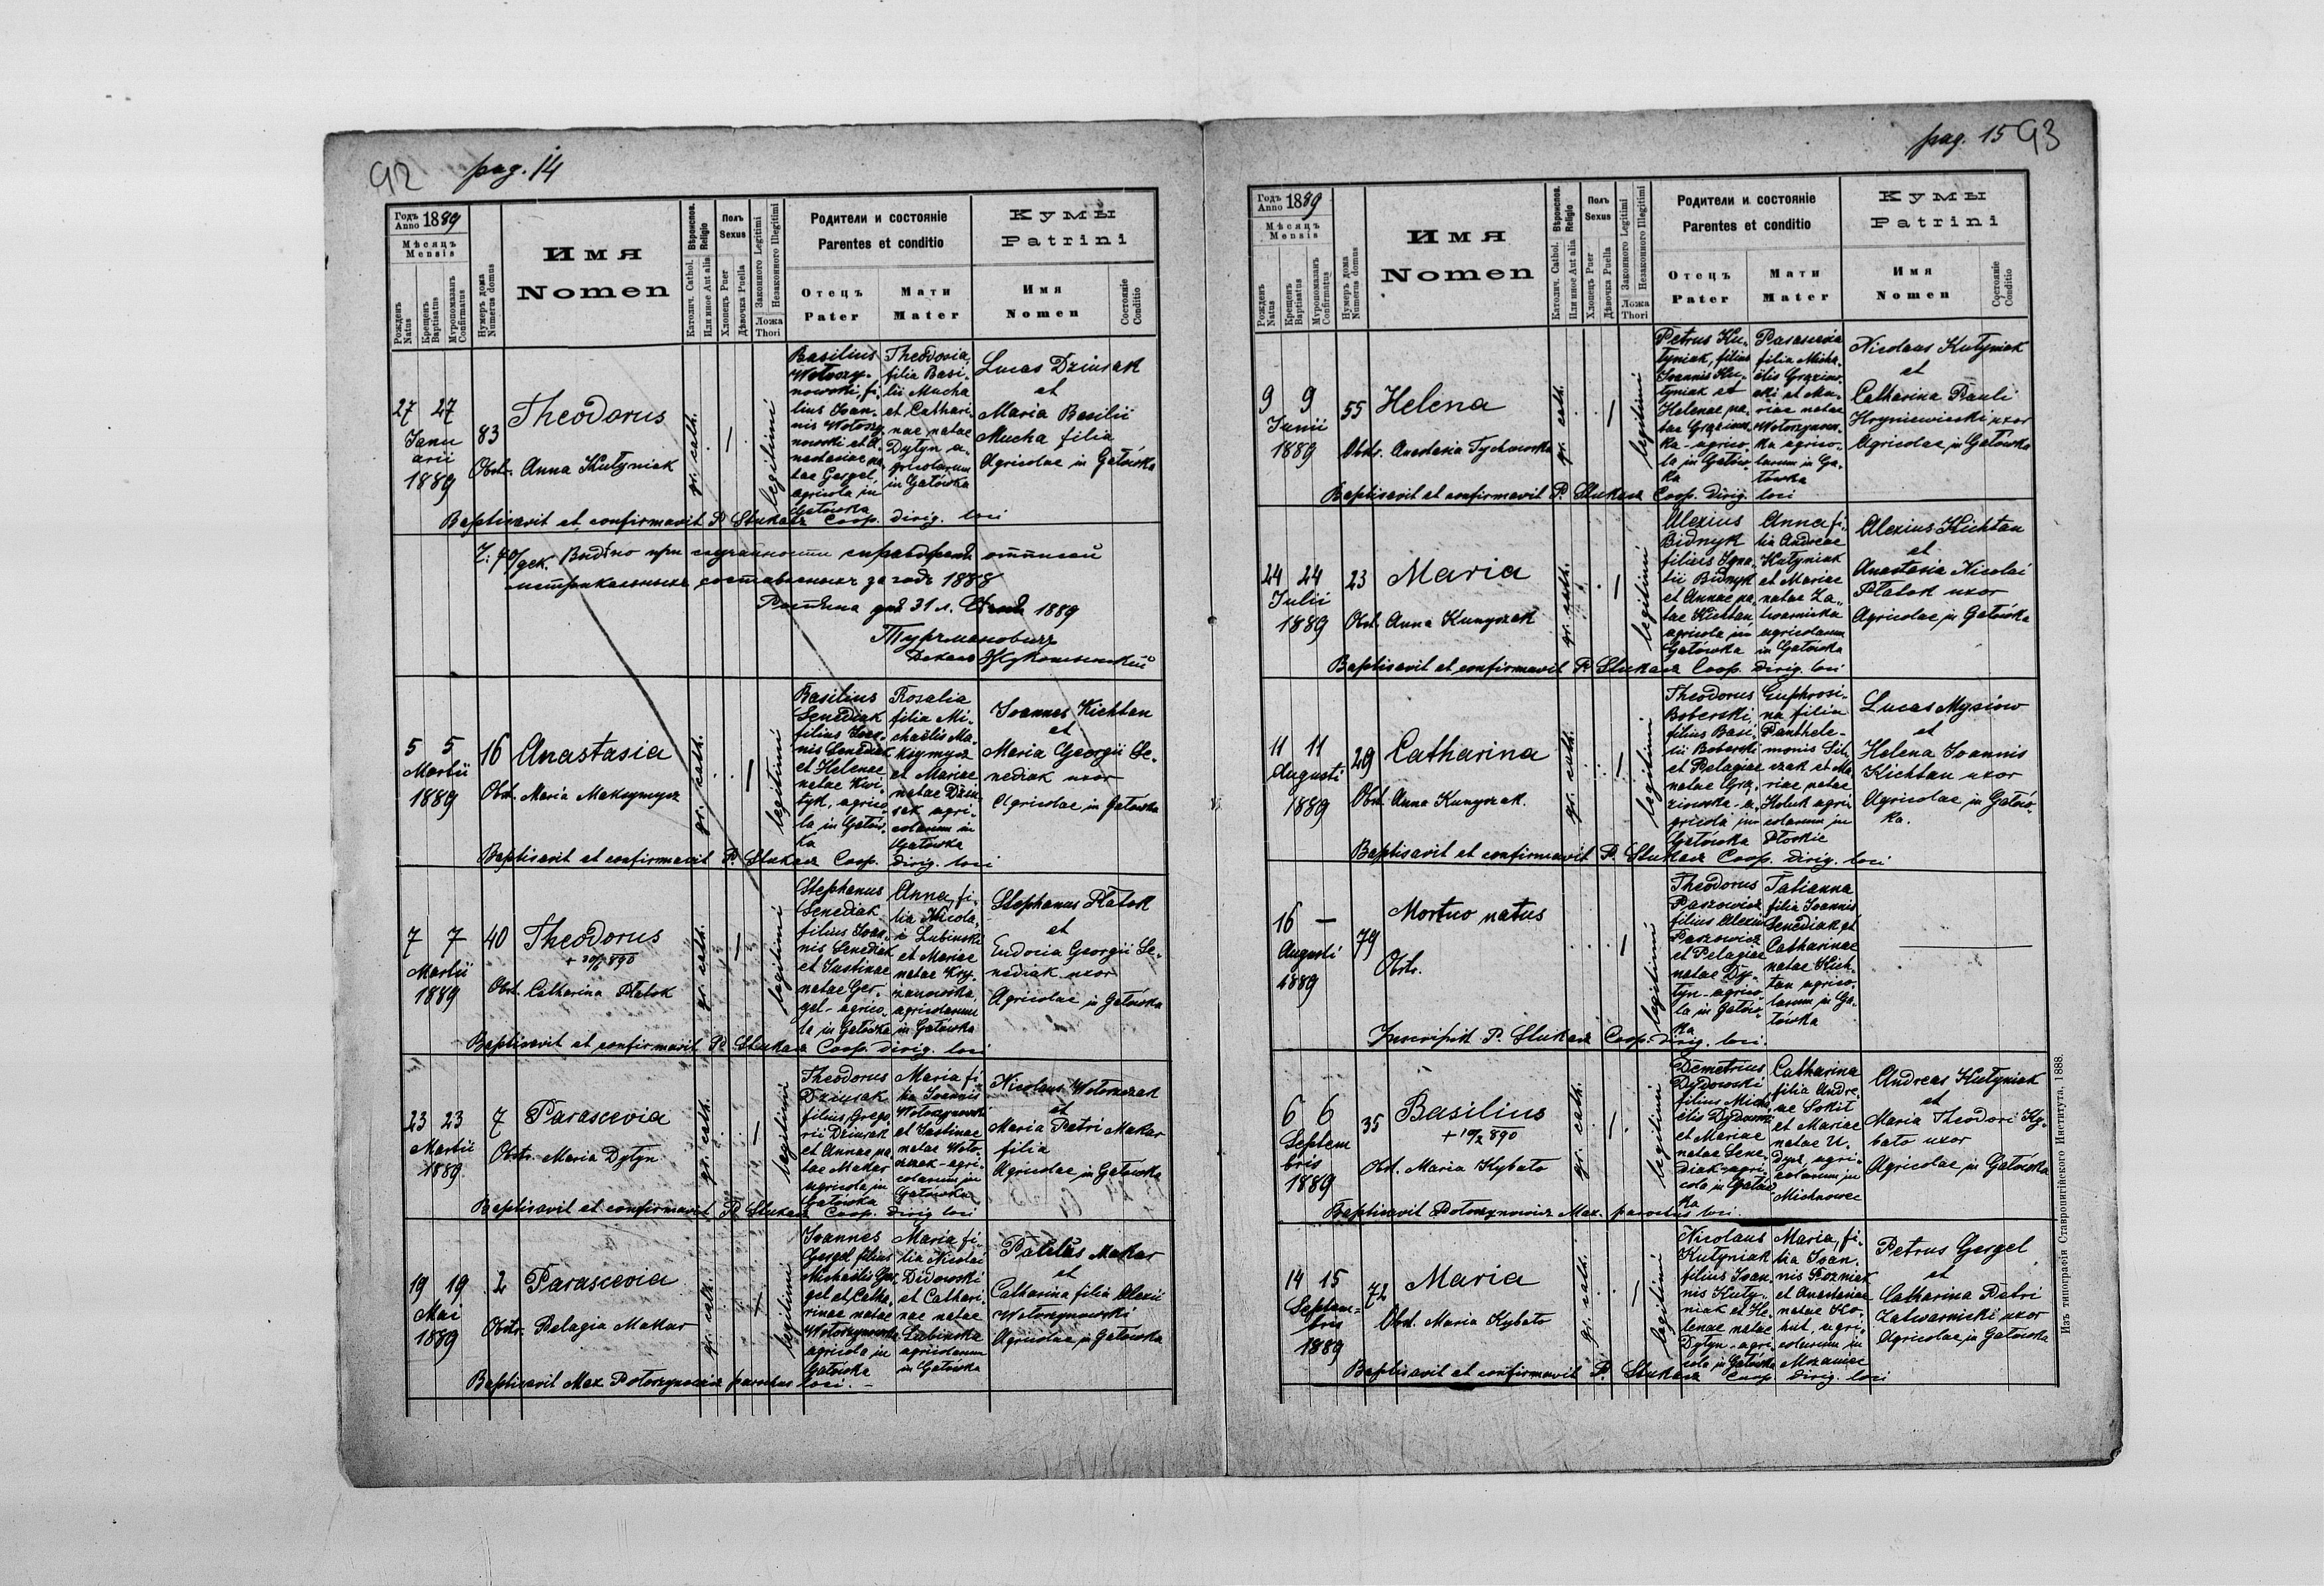 92 pag. 14
Годъ 1889
Anno
Мѣсяцъ
Mensis
Рожденъ Natus
Крещенъ Baptisatus
Мѵропомазанъ Confirmatus
Нумеръ дома Numerus domus
Имя
Nomen
Вѣроиспов. Religio
Католич. Cathol.
Или иное Aut alia
Полъ
Sexus
Хлопець Puer
Дѣвочка Puella
Законного Legitimi
Незаконного Illegitimi
Ложа
Thori
Родители и состоянiе
Parentes et conditio
Отецъ
Pater
Мати
Mater
Кумы
Patrini
Имя
Nomen
Состоянiе
Conditio
27 27
Janu
arii
1889
83
Theodorus
Obst. Anna Kutyniak
gr. cath.
legitimi
Basilius
Wołoszy-
nowski, fi-
lius Joan-
nis Wołoszy
nowski et A-
nastasiae na-
tae Gergel,
agricola in
Gatówka
Theodoria,
filia Basi-
lii Mucha
et Cathari-
nae natae
Dytyn a-
gricolarum
in Gatówka
Lucas Dziurak
et
Maria Basilii
Mucha filia
Agricolae in Gatówka
Baptisavit et confirmavit P. Stukacz Coop. dirig. loci
метрикальныхъ составленыхъ за годъ 1888
31 1889
5 5
Martii
1889
16
Anastasia
Obst. Maria Maksymycz
gr. cath.
legitimi
Basilius
Senediak
filius Joan-
nis Senediak
et Helenae
natae Kwi-
tyk, agrico-
la in Gatów-
ka
Rosalia
filia Mi-
chaëlis Ma-
ksymycz
et Mariae
natae Dziu-
rak agri-
colarum in
Gatówka
Joannes Kichtan
et
Maria Georgii Se-
nediak uxor
Agricolae in Gatówka
Baptisavit et confirmavit P. Stukacz Coop. dirig. loci
7 7
Martii
1889
40
Theodorus
+ 20/6 890
Obst. Catharina Płatok
gr. cath.
legitimi
Stephanus
Senediak
filius Joan-
nis Senediak
et Justinae
natae Ger-
gel - agrico-
la in Gatówka
Anna, fi-
lia Nicola-
i Lubinski
et Mariae
natae Kry-
agricolarum
in Gatówka
Stephanus Płatok
et
Eudocia Georgii Se-
nediak uxor
Agricolae in Gatówka
Baptisavit et confirmavit P. Stukacz Coop. dirig. loci
23 23
Martii
1889
7
Parascevia
Obst. Maria Dytyn
gr. cath.
legitimi
Theodorus
Dziurak
filius Grego-
rii Dziurak
et Annae na-
tae Makar
agricola in
Gatówka
Maria fi-
lia Joannis
Wołoszynowski
et Justinae
natae Woło-
szczak - agri-
colarum in
Gatówka
Nicolaus Wołoszczak
et
Maria Petri Makar
filia
Agricolae in Gatówka
Baptisavit et confirmavit P. Stukacz Coop. dirig. loci
19 19
Mai
1889
2
Parascevia
Obst. Pelagia Makar
gr. cath.
legitimi
Joannes
Gergel filius
Michaëlis Ger-
gel et Catha-
rinae natae
Wołoszynowska
agricola in
Gatówka
Maria fi-
lia Nicolai
Didowski
et Cathari-
nae natae
Lubinska
agricolarum
in Gatówka
Makar
et
Catharina filia Alexii
Wołoszynowski
Agricolae in Gatówka
Baptisavit Max Potoszynowicz parochus loci. -
pag. 15 93
Годъ 1889
Anno
Мѣсяцъ
Mensis
Рожденъ Natus
Крещенъ Baptisatus
Мѵропомазанъ Confirmatus
Нумеръ дома Numerus domus
Имя
Nomen
Вѣроиспов. Religio
Католич. Cathol.
Или иное Aut alia
Полъ
Sexus
Хлопець Puer
Дѣвочка Puella
Законного Legitimi
Незаконного Illegitimi
Ложа
Thori
Родители и состоянiе
Parentes et conditio
Отецъ
Pater
Мати
Mater
Кумы
Patrini
Имя
Nomen
Состоянiе
Conditio
9 9
Junii
1889
55
Helena
Obst. Anastasia Tychowska
gr. cath.
legitimi
Petrus Ku-
tyniak, filius
Joannis Ku-
tyniak et
Helenae na-
tae Graziow-
ka - agrico-
la in Gatów-
ka
Parascevia
filia Micha-
ëlis Graziow-
ski et Ma-
riae natae
Wołoszynow-
ka agrico-
larum in Ga-
tówka
Nicolaus Kutyniak
et
Catharina Pauli
Hryniewiecki uxor
Agricolae in Gatówka
Baptisavit et confirmavit P. Stukacz Coop. dirig. loci
24 24
Julii
1889
23
Maria
Obst. Anna Kunyszak
gr. cath.
legitimi
Alexius
Bidnyk
filius Igna-
tii Bidnyk
et Annae na-
tae Kichtan
agricola in
Gatówka
Anna fi-
lia Andreae
Kutyniak
et Mariae
natae Za-
twarnicka
agricolarum
in Gatówka
Alexius Kichtan
et
Anastasia Nicolai
Płatok uxor
Agricolae in Gatówka
Baptisavit et confirmavit P. Stukacz Coop. dirig. loci
11 11
Augusti
1889
29
Catharina
Obst. Anna Kunyszak.
gr. cath.
legitimi
Theodorus
Boberski
filius Basi-
lii Boberski
et Pelagiae
natae Gra-
ziowska - a-
gricola in
Gatówka
Euphrosi-
na filia
Panthele-
monis Sit-
czak et Ma-
riae natae
Hołuk agri-
colarum in
Płoskie
Lucas Mysiow
et
Helena Joannis
Kichtan uxor
Agricolae in Gatów-
ka.
Baptisavit et confirmavit P. Stukacz Coop. dirig. loci
16 —
Augusti
1889
79
Mortuo natus
Obst.
legitimi
Theodorus
Paszowicz
filius Alexii
Paszowicz
et Pelagiae
natae Dy-
tyn - agrico-
la in Gatów-
ka
Tatianna
filia Joannis
Senediak et
Catharinae
natae Kich-
tan agrico-
larum in Ga-
tówka
Inscripsit P. Stukacz Coop. dirig. loci.
6 6
Septem
bris
1889
35
Basilius
+ 19/2 890
Obst. Maria Kybato
gr. cath.
legitimi
Demetrius
Dydowski
filius Micha-
ëlis Dydowski
et Mariae
natae Sene-
diak - agri-
cola in Gatów-
ka
Catharina
filia Andre-
ae Sokit
et Mariae
natae U-
agri-
colarum in
Michnowec
Andreas Kutyniak
et
Maria Theodori Ky-
bato uxor
Agricolae in Gatówka
Baptisavit Potoszynowicz Max. parochus loci.
14 15
Septem=
bris
1889
72
Maria
Obst. Maria Kybato
gr. cath.
legitimi
Nicolaus
Kutyniak
filius Joan-
nis Kuty-
niak et He-
lenae natae
Dytyn - agri-
cola in Gatówka
Maria, fi-
lia Joan-
nis Pozniak
et Anastasiae
natae Ko-
hut, agri-
colarum in
Mszaniec
Petrus Gergel
et
Catharina Petri
Zatwarnicki uxor
Agricolae in Gatówka
Baptisavit et confirmavit P. Stukacz Coop dirig. loci
Изъ типографiи Ставропигiйского Института. 1888.